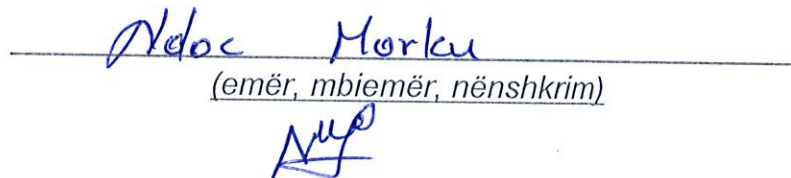 Ndoc Morku
(emër, mbiemër, nënshkrim)